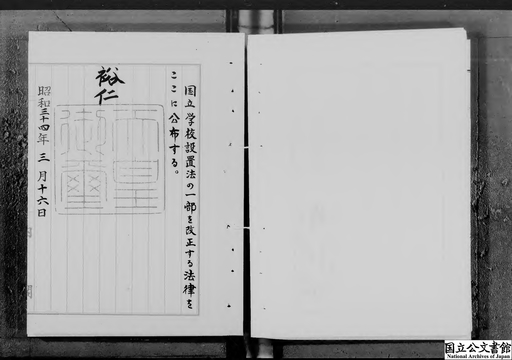 国立学校設置法の一部を改正する法律を
ここに公布する。
裕仁
天皇
御璽
昭和三十四年三月十六日
国立公文書館
National Archives of Japan